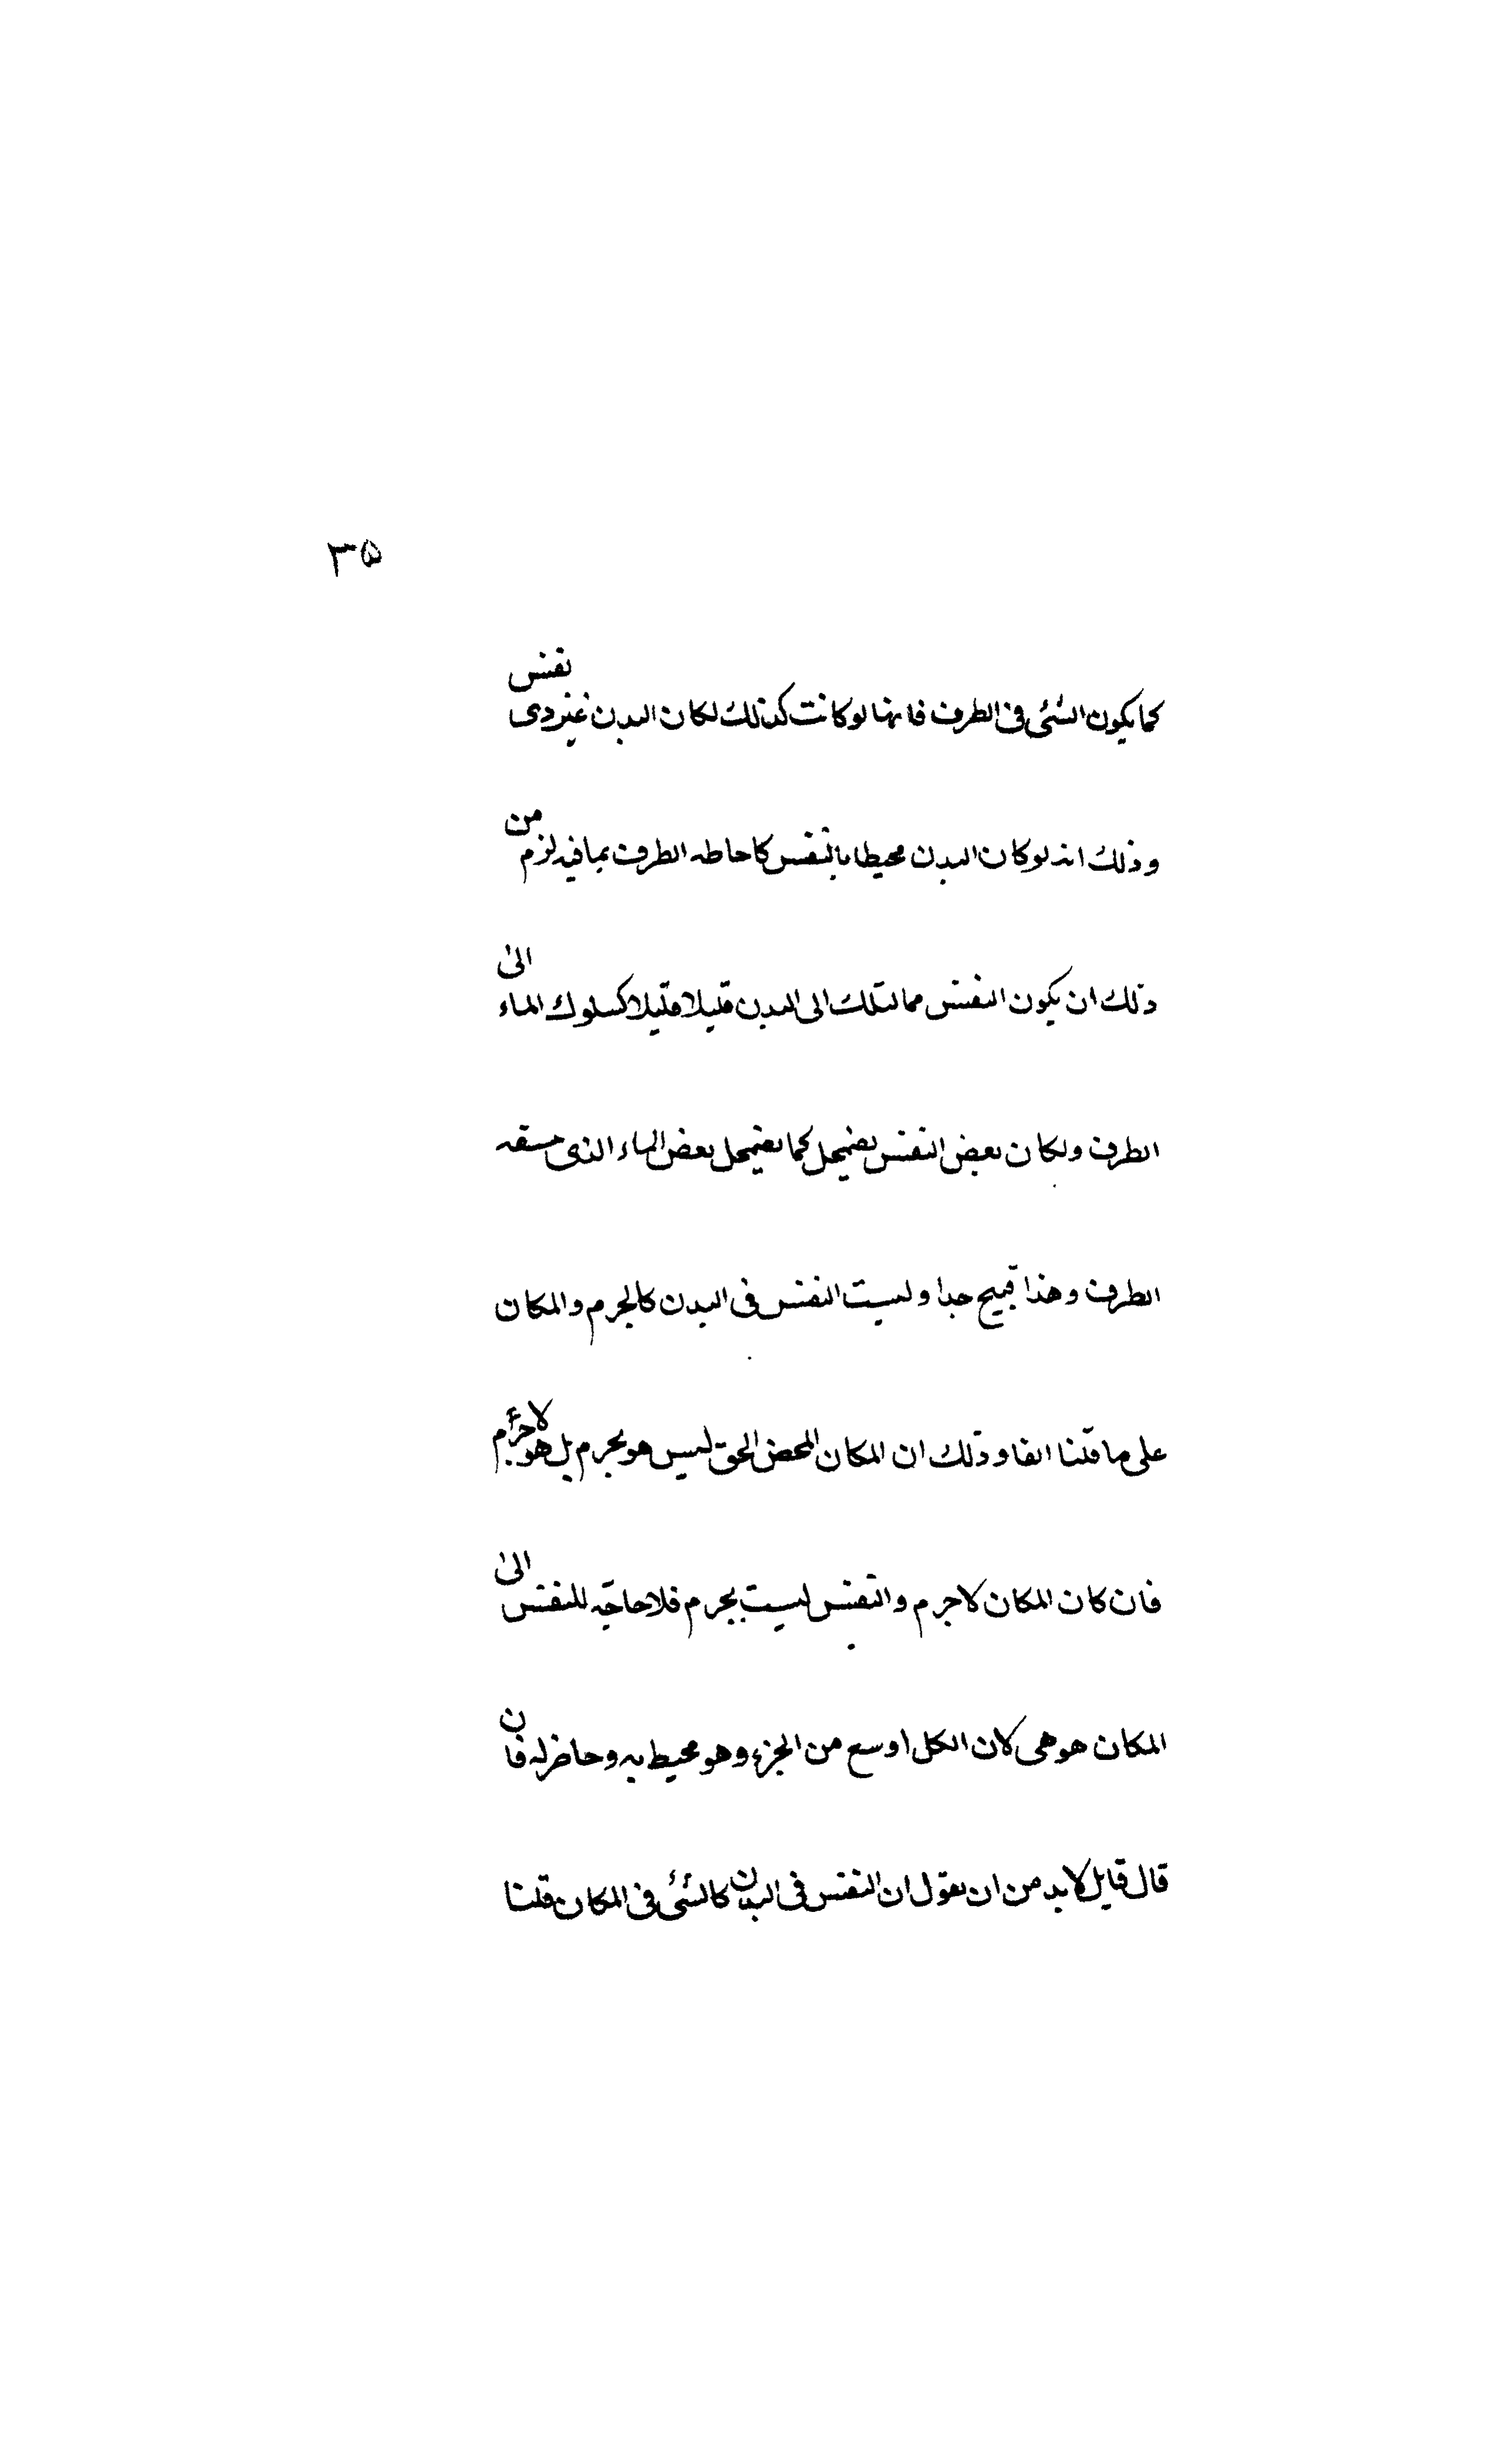 ٣٥
كما يكون الشئ فى الظرف فانها لو كانت كذلك لكان البدن غير ذى نفس
وذلك انه لو كان البدن محيطا بالنفس كاحاطه الظرف بما فيه لزم من
ذلك ان يكون النفس مما الى البدن قليلا قليلا كسلوك الماء الى
الظرف ولكان بعض النفس يضمحل كما يضمحل بعض الماء الذى
الظرف وهذا قبيح جدا وليست النفس فى البدن كالجرم والمكان
على ما قلنا انفا وذلك ان المكان المحض الحق ليس هو بجرم بل هو لا جرم
فان كان المكان لا جرم والنفس ليست بجرم فلا حاجه للنفس الى
المكان هو هى لان الكل اوسع من الجزء وهو محيط به وحاضر له فان
قال قايل لا بد من ان نقول ان النفس فى البدن كالشئ فى المكان قلنا